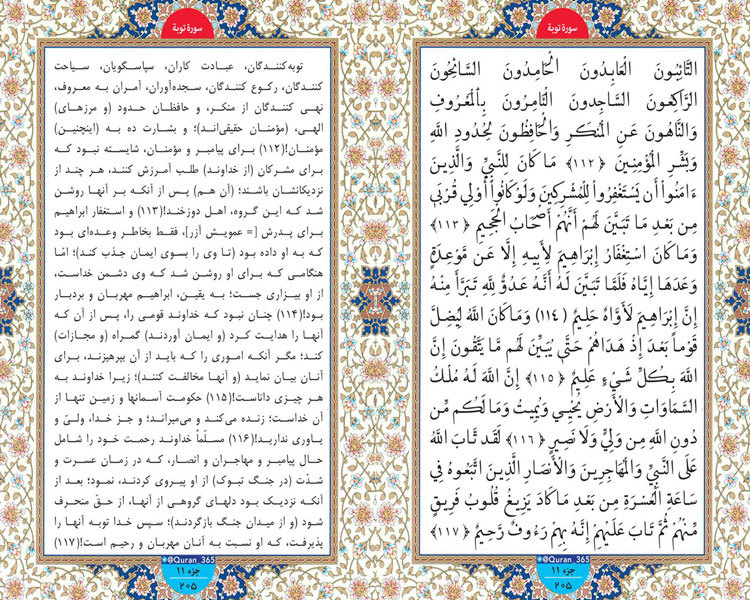 سورهٔ توبة
التَّائِبُونَ الْعَابِدُونَ الْحَامِدُونَ السَّائِحُونَ
الرَّاكِعُونَ السَّاجِدُونَ الْآمِرُونَ بِالْمَعْرُوفِ
وَالنَّاهُونَ عَنِ الْمُنْكَرِ وَالْحَافِظُونَ لِحُدُودِ اللَّهِ
وَبَشِّرِ الْمُؤْمِنِينَ ﴿۱۱۲﴾ مَا كَانَ لِلنَّبِيِّ وَالَّذِينَ
ءَامَنُواْ أَن يَسْتَغْفِرُواْ لِلْمُشْرِكِينَ وَلَوْ كَانُواْ أُوْلِي قُرْبَى
مِن بَعْدِ مَا تَبَيَّنَ لَهُمْ أَنَّهُمْ أَصْحَابُ الْجَحِيمِ ﴿۱۱۳﴾
وَمَا كَانَ اسْتِغْفَارُ إِبْرَاهِيمَ لِأَبِيهِ إِلَّا عَن مَّوْعِدَةٍ
وَعَدَهَا إِيَّاهُ فَلَمَّا تَبَيَّنَ لَهُ أَنَّهُ عَدُوٌّ لِلَّهِ تَبَرَّأَ مِنْهُ
إِنَّ إِبْرَاهِيمَ لَأَوَّاهٌ حَلِيمٌ ﴿۱۱۴﴾ وَمَا كَانَ اللَّهُ لِيُضِلَّ
قَوْماً بَعْدَ إِذْ هَدَاهُمْ حَتَّى يُبَيِّنَ لَهُم مَّا يَتَّقُونَ إِنَّ
اللَّهَ بِكُلِّ شَيْءٍ عَلِيمٌ ﴿۱۱۵﴾ إِنَّ اللَّهَ لَهُ مُلْكُ
السَّمَاوَاتِ وَالْأَرْضِ يُحْيِي وَيُمِيتُ وَمَا لَكُم مِّن
دُونِ اللَّهِ مِن وَلِيٍّ وَلَا نَصِيرٍ ﴿۱۱۶﴾ لَقَد تَّابَ اللَّهُ
عَلَى النَّبِيِّ وَالْمُهَاجِرِينَ وَالْأَنْصَارِ الَّذِينَ اتَّبَعُوهُ فِي
سَاعَةِ الْعُسْرَةِ مِن بَعْدِ مَا كَادَ يَزِيغُ قُلُوبُ فَرِيقٍ
مِّنْهُمْ ثُمَّ تَابَ عَلَيْهِمْ إِنَّهُ بِهِمْ رَءُوفٌ رَّحِيمٌ ﴿۱۱۷﴾
@Quran_365
جزء ۱۱
۲۰۵
سورهٔ توبة
توبه‌کنندگان، عبادت کاران، سپاسگویان، سیاحت
کنندگان، رکوع کنندگان، سجده‌آوران، آمران به معروف،
نهی کنندگان از منکر، و حافظان حدود (و مرزهای)
الهی، (مؤمنان حقیقی‌اند)؛ و بشارت ده به (اینچنین)
مؤمنان!(۱۱۲) برای پیامبر و مؤمنان، شایسته نبود که
برای مشرکان (از خداوند) طلب آمرزش کنند، هر چند از
نزدیکانشان باشند؛ (آن هم) پس از آنکه بر آنها روشن
شد که این گروه، اهل دوزخند!(۱۱۳) و استغفار ابراهیم
برای پدرش [= عمویش آزر]، فقط بخاطر وعده‌ای بود
که به او داده بود (تا وی را بسوی ایمان جذب کند)؛ امّا
هنگامی که برای او روشن شد که وی دشمن خداست،
از او بیزاری جست؛ به یقین، ابراهیم مهربان و بردبار
بود!(۱۱۴) چنان نبود که خداوند قومی را، پس از آن که
آنها را هدایت کرد (و ایمان آوردند) گمراه (و مجازات)
کند؛ مگر آنکه اموری را که باید از آن بپرهیزند، برای
آنان بیان نماید (و آنها مخالفت کنند)؛ زیرا خداوند به
هر چیزی داناست!(۱۱۵) حکومت آسمانها و زمین تنها از
آن خداست؛ زنده می‌کند و می‌میراند؛ و جز خدا، ولیّ و
یاوری ندارید!(۱۱۶) مسلّماً خداوند رحمت خود را شامل
حال پیامبر و مهاجران و انصار، که در زمان عسرت و
شدّت (در جنگ تبوک) از او پیروی کردند، نمود؛ بعد از
آنکه نزدیک بود دلهای گروهی از آنها، از حقّ منحرف
شود (و از میدان جنگ بازگردند)؛ سپس خدا توبه آنها را
پذیرفت، که او نسبت به آنان مهربان و رحیم است!(۱۱۷)
@Quran_365
جزء ۱۱
۲۰۵